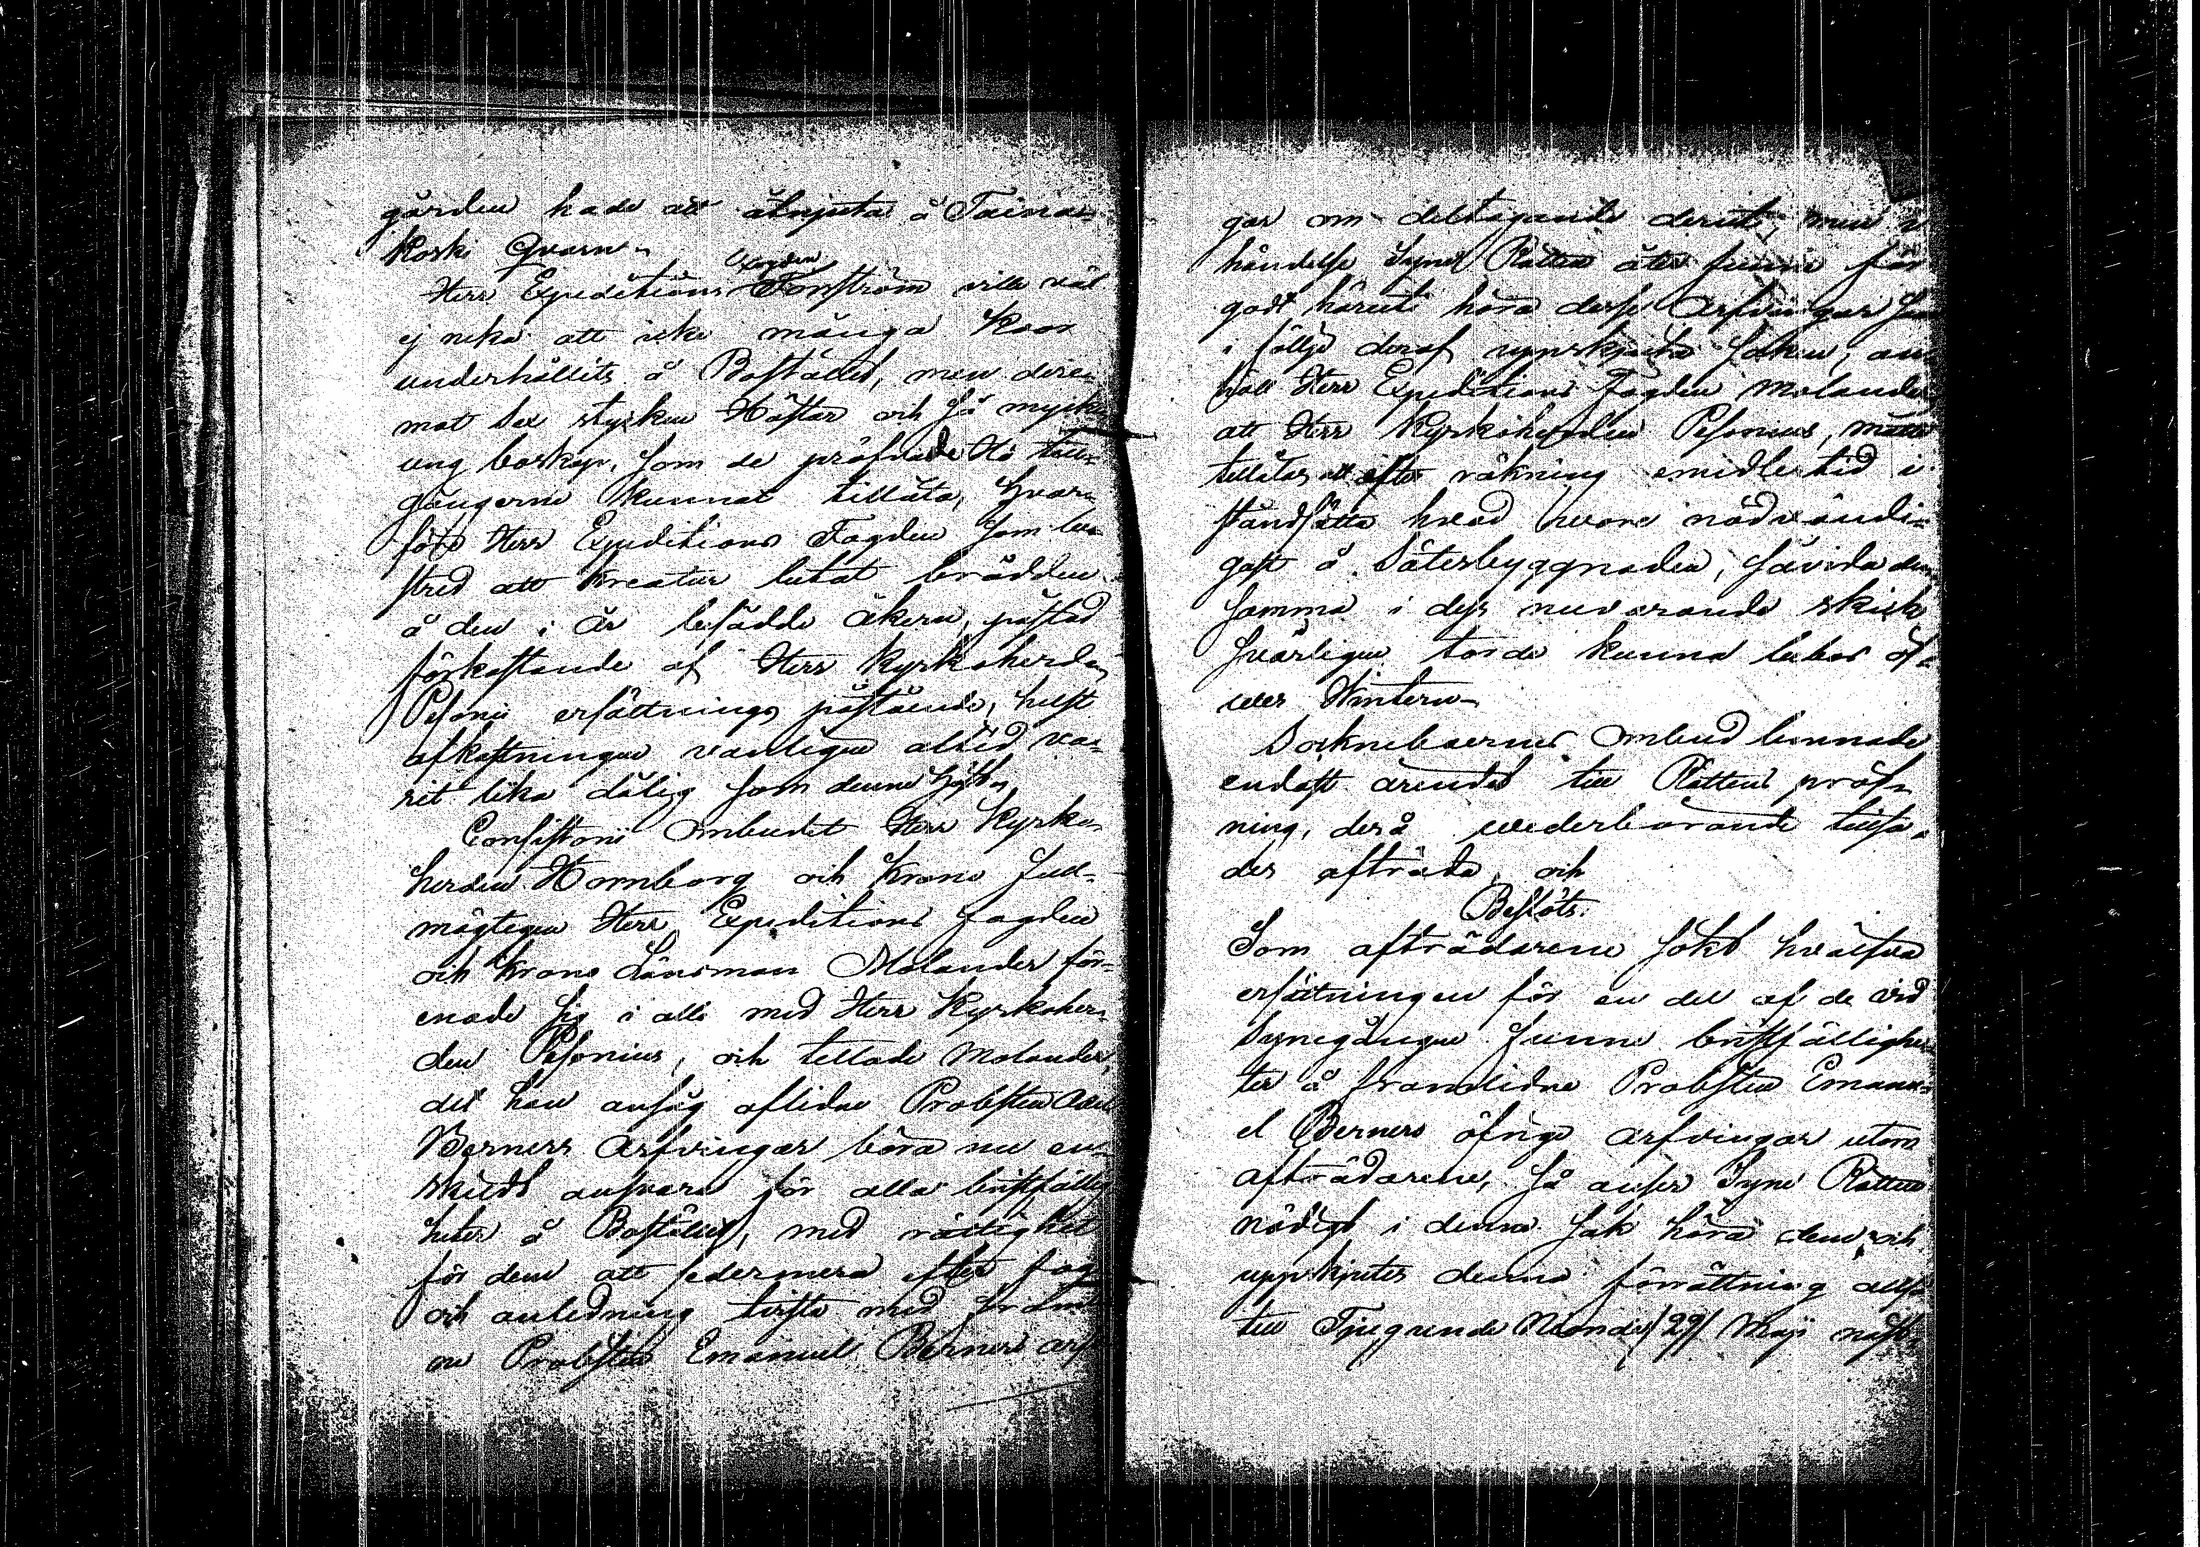 gården hade att åtnjuta å Taina-
koski Qvarn-
Fogden
Herr Expeditions Forsström ville väl
ej neka att icke många Koor
underhållits å Bostället, men dere-
mot Sex stycken Hästar och så mycken
ung boskap, som de pröfvade Hö till-
gångerne kunnat tillåta, hvar-
före Herr Expeditions Fogden som be-
stred att kreatur betat brädden
å den i år besådde åkern, påstod
förkastande af Herr Kyrkoherden
Pesonii ersättnings påstående, helst
afkastningen vanligen altid va-
rit lika dålig som denne höst-
Consistorii Ombudet Herr Kyrko-
herden Hornborg och Krono full-
mägtigen Herr Expeditions fogden
och Krono Länsman Molander för-
enade sig i allo med Herr Kyrkoher-
den Pesonius, och tillade Molander,
det han ansåg aflidne Probsten
Berners Arfvingar böra nu en-
skildt ansvara för alla bristfällig
heter å Bostället, med rättighet
för dem att sedermera efter fog
och anledning tvista med
ne Probsten Emanuel Berners arf
gar om deltagande deruti, men i
händelse Syne Rätten åter funne för
godt häruti höra desse Arfvingar
i följd deraf uppskjuta saken, an
höll Herr Expeditions Fogden Molander
att Herr Kyrkoherden Pesonius, måtte
tillåtas att efter räkning emidlertid i
ståndsätta hvad wore nödvändi-
gast å Sätesbyggnaden, såvida den
samma i dess nuvarande skick
svårligen torde kunna bebos öf-
wer Wintern-
Sockneboernes Ombud lemnade
endast ärendet till Rättens pröf-
ning, derå wederbörande tillsa-
des afträda, och
Beslöts:
Som afträdarene sökt hvälfva
ersättningen för en del af de vid
Synegången funne bristfällighe
ter å framlidne Probsten Emanu-
el Berners öfrige arfvingar utom
afträdarene, så anser Syne Rätten
nödigt i denna sak höra dem och
uppskjutes denna förrättning allt
till Tjugunde Nionde /29/ Maji näst